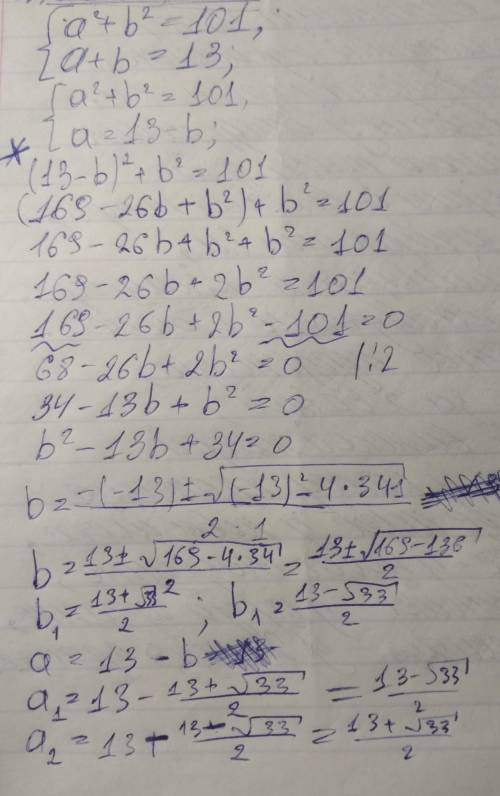 {a² + b² = 101,
{a + b = 13;
{a² + b² = 101,
{a = 13 - b;
* (13 - b)² + b² = 101
(169 - 26b + b²) + b² = 101
169 - 26b + b² + b² = 101
169 - 26b + 2b² = 101
169 - 26b + 2b² - 101 = 0
68 - 26b + 2b² = 0 |:2
34 - 13b + b² = 0
b² - 13b + 34 = 0
b = (-(-13) ± √((-13)² - 4 · 34 1)) / (2 · 1)
b = (13 ± √(169 - 4 · 34)) / 2 = (13 ± √(169 - 136)) / 2
b₁ = (13 + √33) / 2 ; b₁ = (13 - √33) / 2
a = 13 - b
a₁ = 13 - (13 + √33) / 2 = (13 - √33) / 2
a₂ = 13 - (13 - √33) / 2 = (13 + √33) / 2